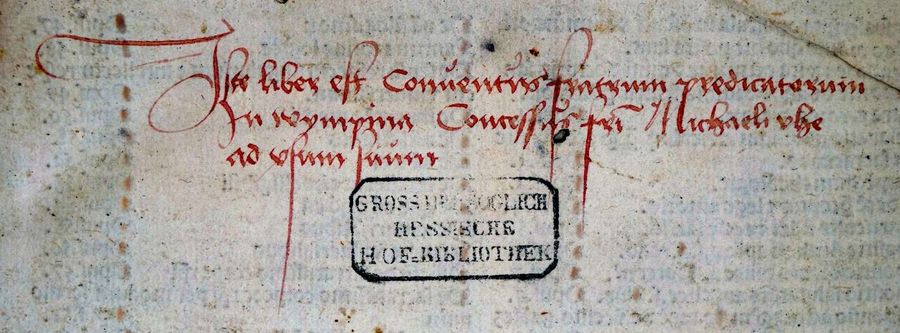 Iste liber est Conventus fratrum predicatorum
In wympina Concessus fri Michaeli vhe
ad vsum suum
GROSSHERZOGLICH
HESSISCHE
HOF=BIBLIOTHEK